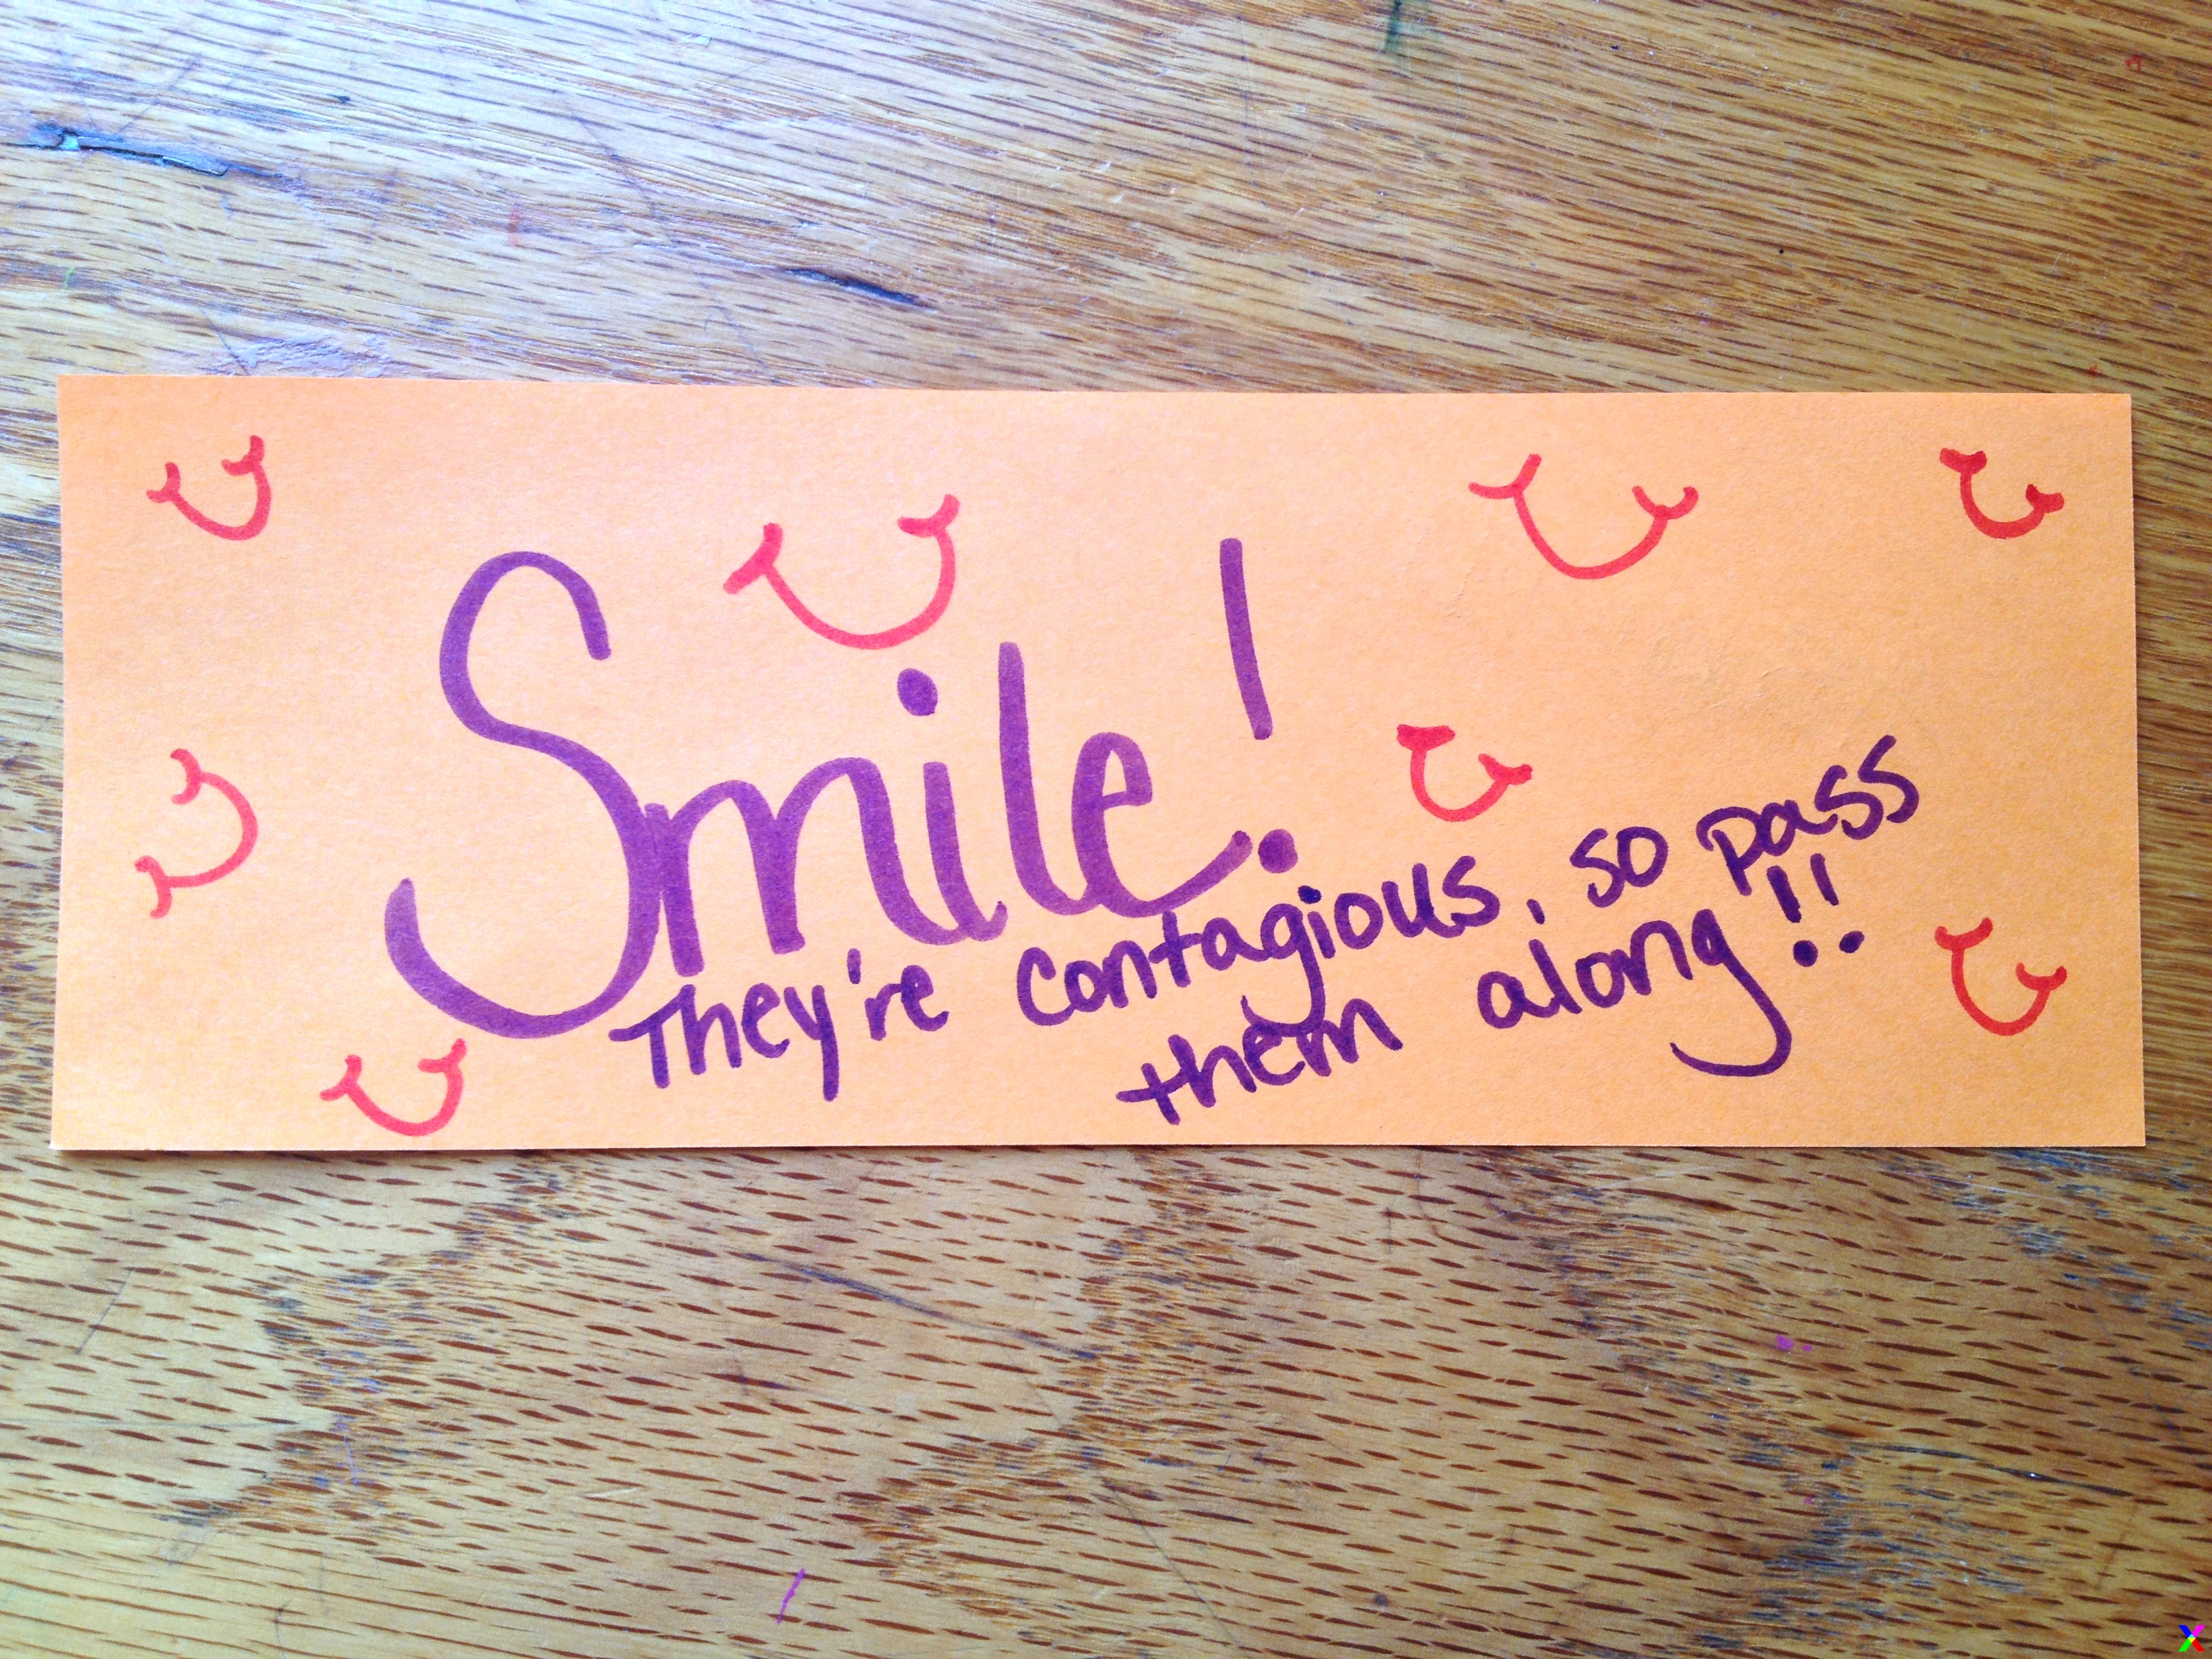 Smile!
They're contagious, so pass
them along!!